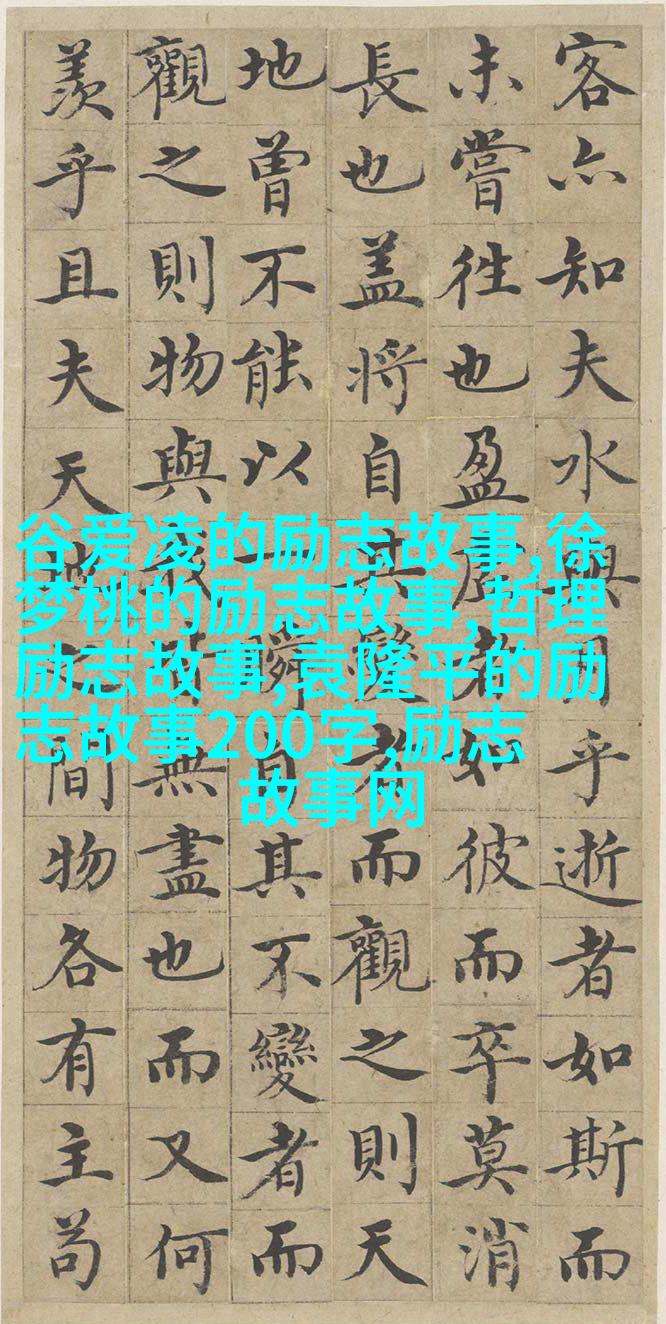 客亦知夫水與月乎逝者如斯而
未嘗徃也盈虛者如彼而卒莫消
長也盖將自其變者而觀之則天
地曾不能以一瞬自其不變者而
觀之則物與我皆無盡也而又何
羨乎且夫天地之間物各有主苟
谷爱凌的励志故事,徐
梦桃的励志故事,哲理
励志故事,袁隆平的励
志故事200字,励志
故事网